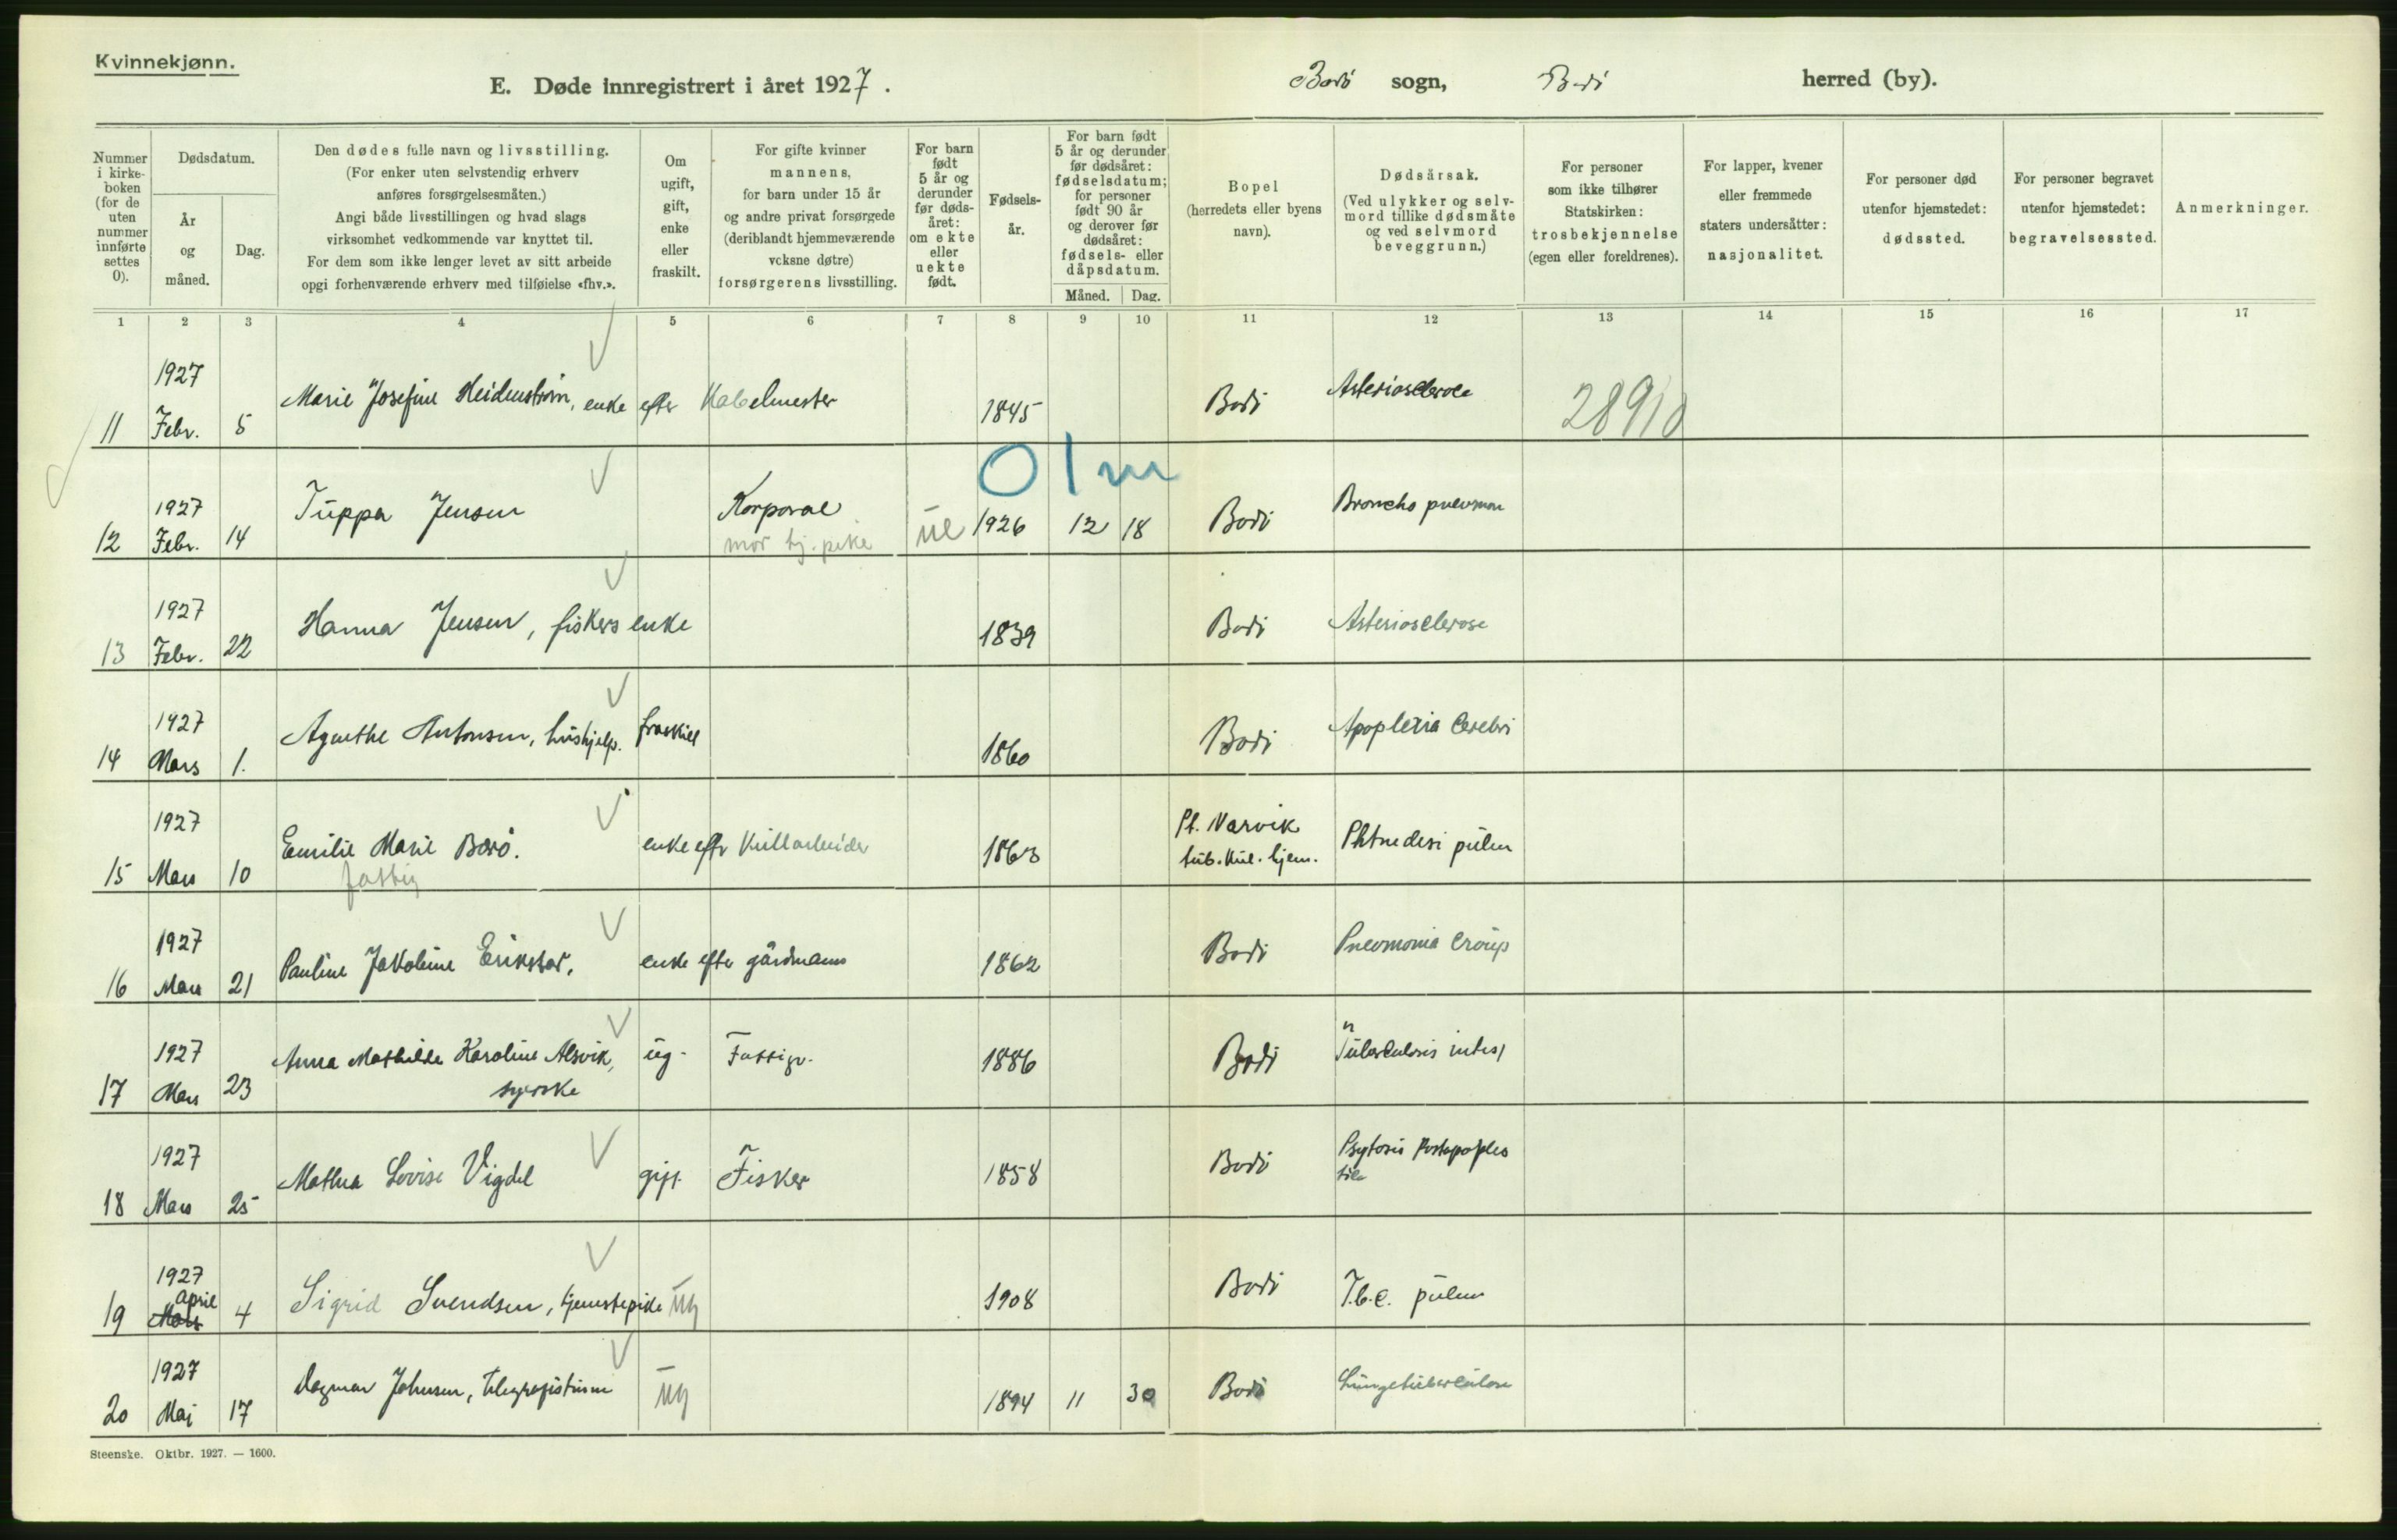 Kvinnekjønn.
E. Døde innregistrert i året 1927.
Bodö sogn, Bodö herred (by).
Nummer i kirkeboken (for de uten nummer innførte settes 0).
Dødsdatum.
År og måned.
Dag.
Den dødes fulle navn og livsstilling.
(For enker uten selvstendig erhverv
anføres forsørgelsesmåten.)
Angi både livsstillingen og hvad slags
virksomhet vedkommende var knyttet til.
For dem som ikke lenger levet av sitt arbeide
opgi forhenværende erhverv med tilføielse «fhv.».
Om ugift, gift, enke eller fraskilt.
For gifte kvinner
mannens,
for barn under 15 år
og andre privat forsørgede
(deriblandt hjemmeværende
voksne døtre)
forsørgerens livsstilling.
For barn født 5 år og derunder før dødsåret: om ekte eller uekte født.
Fødselsår.
For barn født 5 år og derunder før dødsåret: fødselsdatum; for personer født 90 år og derover før dødsåret: fødsels- eller dåpsdatum.
Måned. Dag.
Bopel (herredets eller byens navn).
Dødsårsak.
(Ved ulykker og selvmord tillike dødsmåte og ved selvmord beveggrunn.)
For personer som ikke tilhører Statskirken: trosbekjennelse (egen eller foreldrenes).
For lapper, kvener eller fremmede staters undersåtter: nasjonalitet.
For personer død utenfor hjemstedet: dødssted.
For personer begravet utenfor hjemstedet: begravelsessted.
Anmerkninger.
1 2 3 4 5 6 7 8 9 10 11 12 13 14 15 16 17
11 1927 Febr. 5 Marie Josefine Heidenström, enke efter Kabelmester 1845 Bodö Arteriosclerose 28910
01m
12 1927 Febr. 14 Tuppa Jensen Korporal 1926 12 18 Bodö Broncho pneumon
mor hj. pike ue
13 1927 Febr. 22 Hanna Jensen, fiskers enke 1839 Bodö Arteriosclerose
14 1927 Mars 1. Agnethe Antonsen, hushjelp. fraskill 1860 Bodö Apoplexia Cerebri
15 1927 Mars 10 Emilie Marie Bodö. enke eftr Kullarbeider 1863 Pt. Narvik tub. hjem. pulm
16 1927 Mars 21 Pauline Jakobine Erikstad, enke efter gårdmann 1862 Bodö Pneomonia Croup
17 1927 Mars 23 Anna Mathilde Karoline Alsvik, syerske ug. Fattigv. 1886 Bodö Tuberculosis intest
18 1927 Mars 25 Mathea Lovise Vigdel gift Fisker 1858 Bodö
19 1927 April Mars 4 Sigrid Svendsen, tjenestepike ug 1908 Bodö T.b.c. pulm
20 1927 Mai 17 Dagmar Johnsen, telegrafistinne ug 1894 11 30 Bodö Lungetuberculose
Steenske. Oktbr. 1927. — 1600.